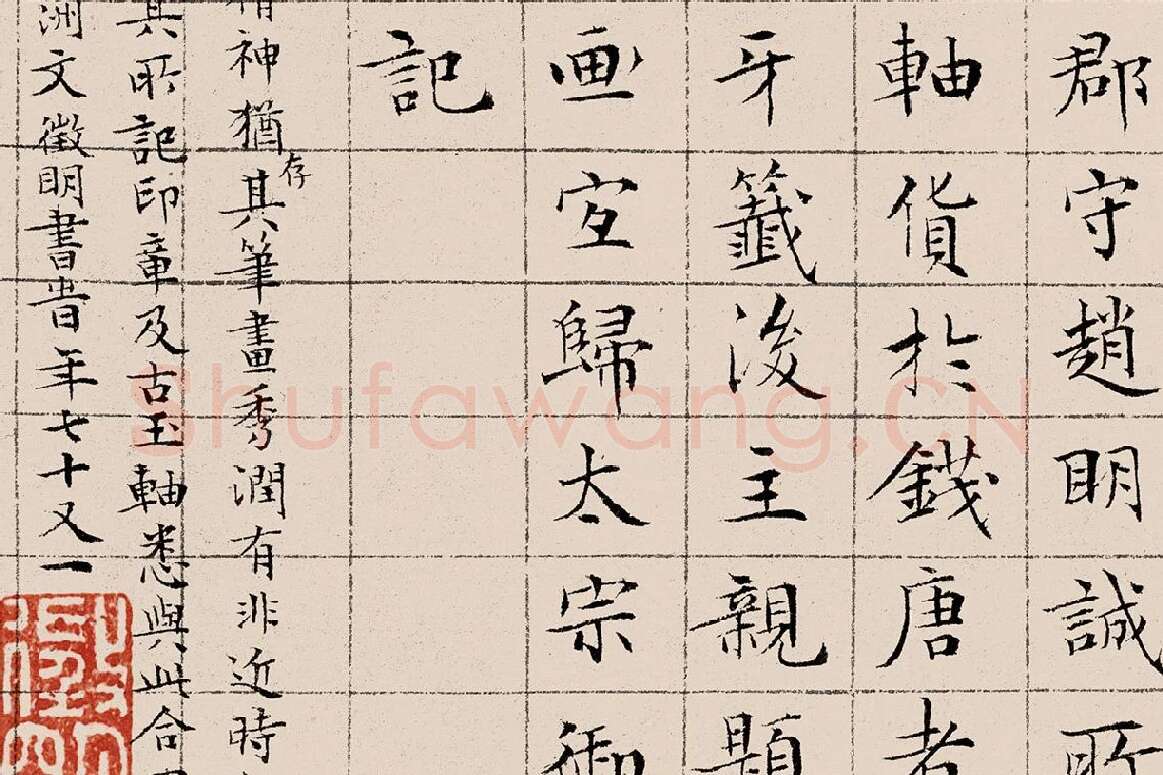 郡守趙明誠所
軸貨於錢唐者
牙籤後主親題
画宜歸太宗御
記
精神猶存其筆畫秀潤有非近時
其所記印章及古玉軸悉與此合
洲文徵明書時年七十又一
Shufawang.CN